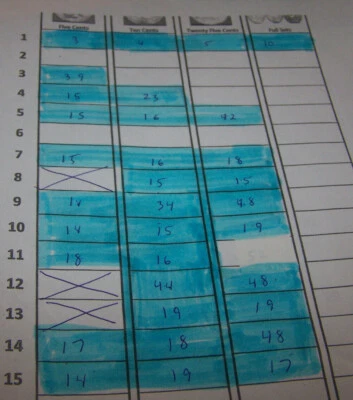 Five Cents Ten Cents Twenty Five Cents Full Sets
1 3 4 5 10
2
3 39
4 15 23
5 15 16 42
6
7 15 16 18
8 15 15
9 14 34 48
10 14 15 19
11 18 16
12 44 48
13 19 19
14 17 18 48
15 14 19 17